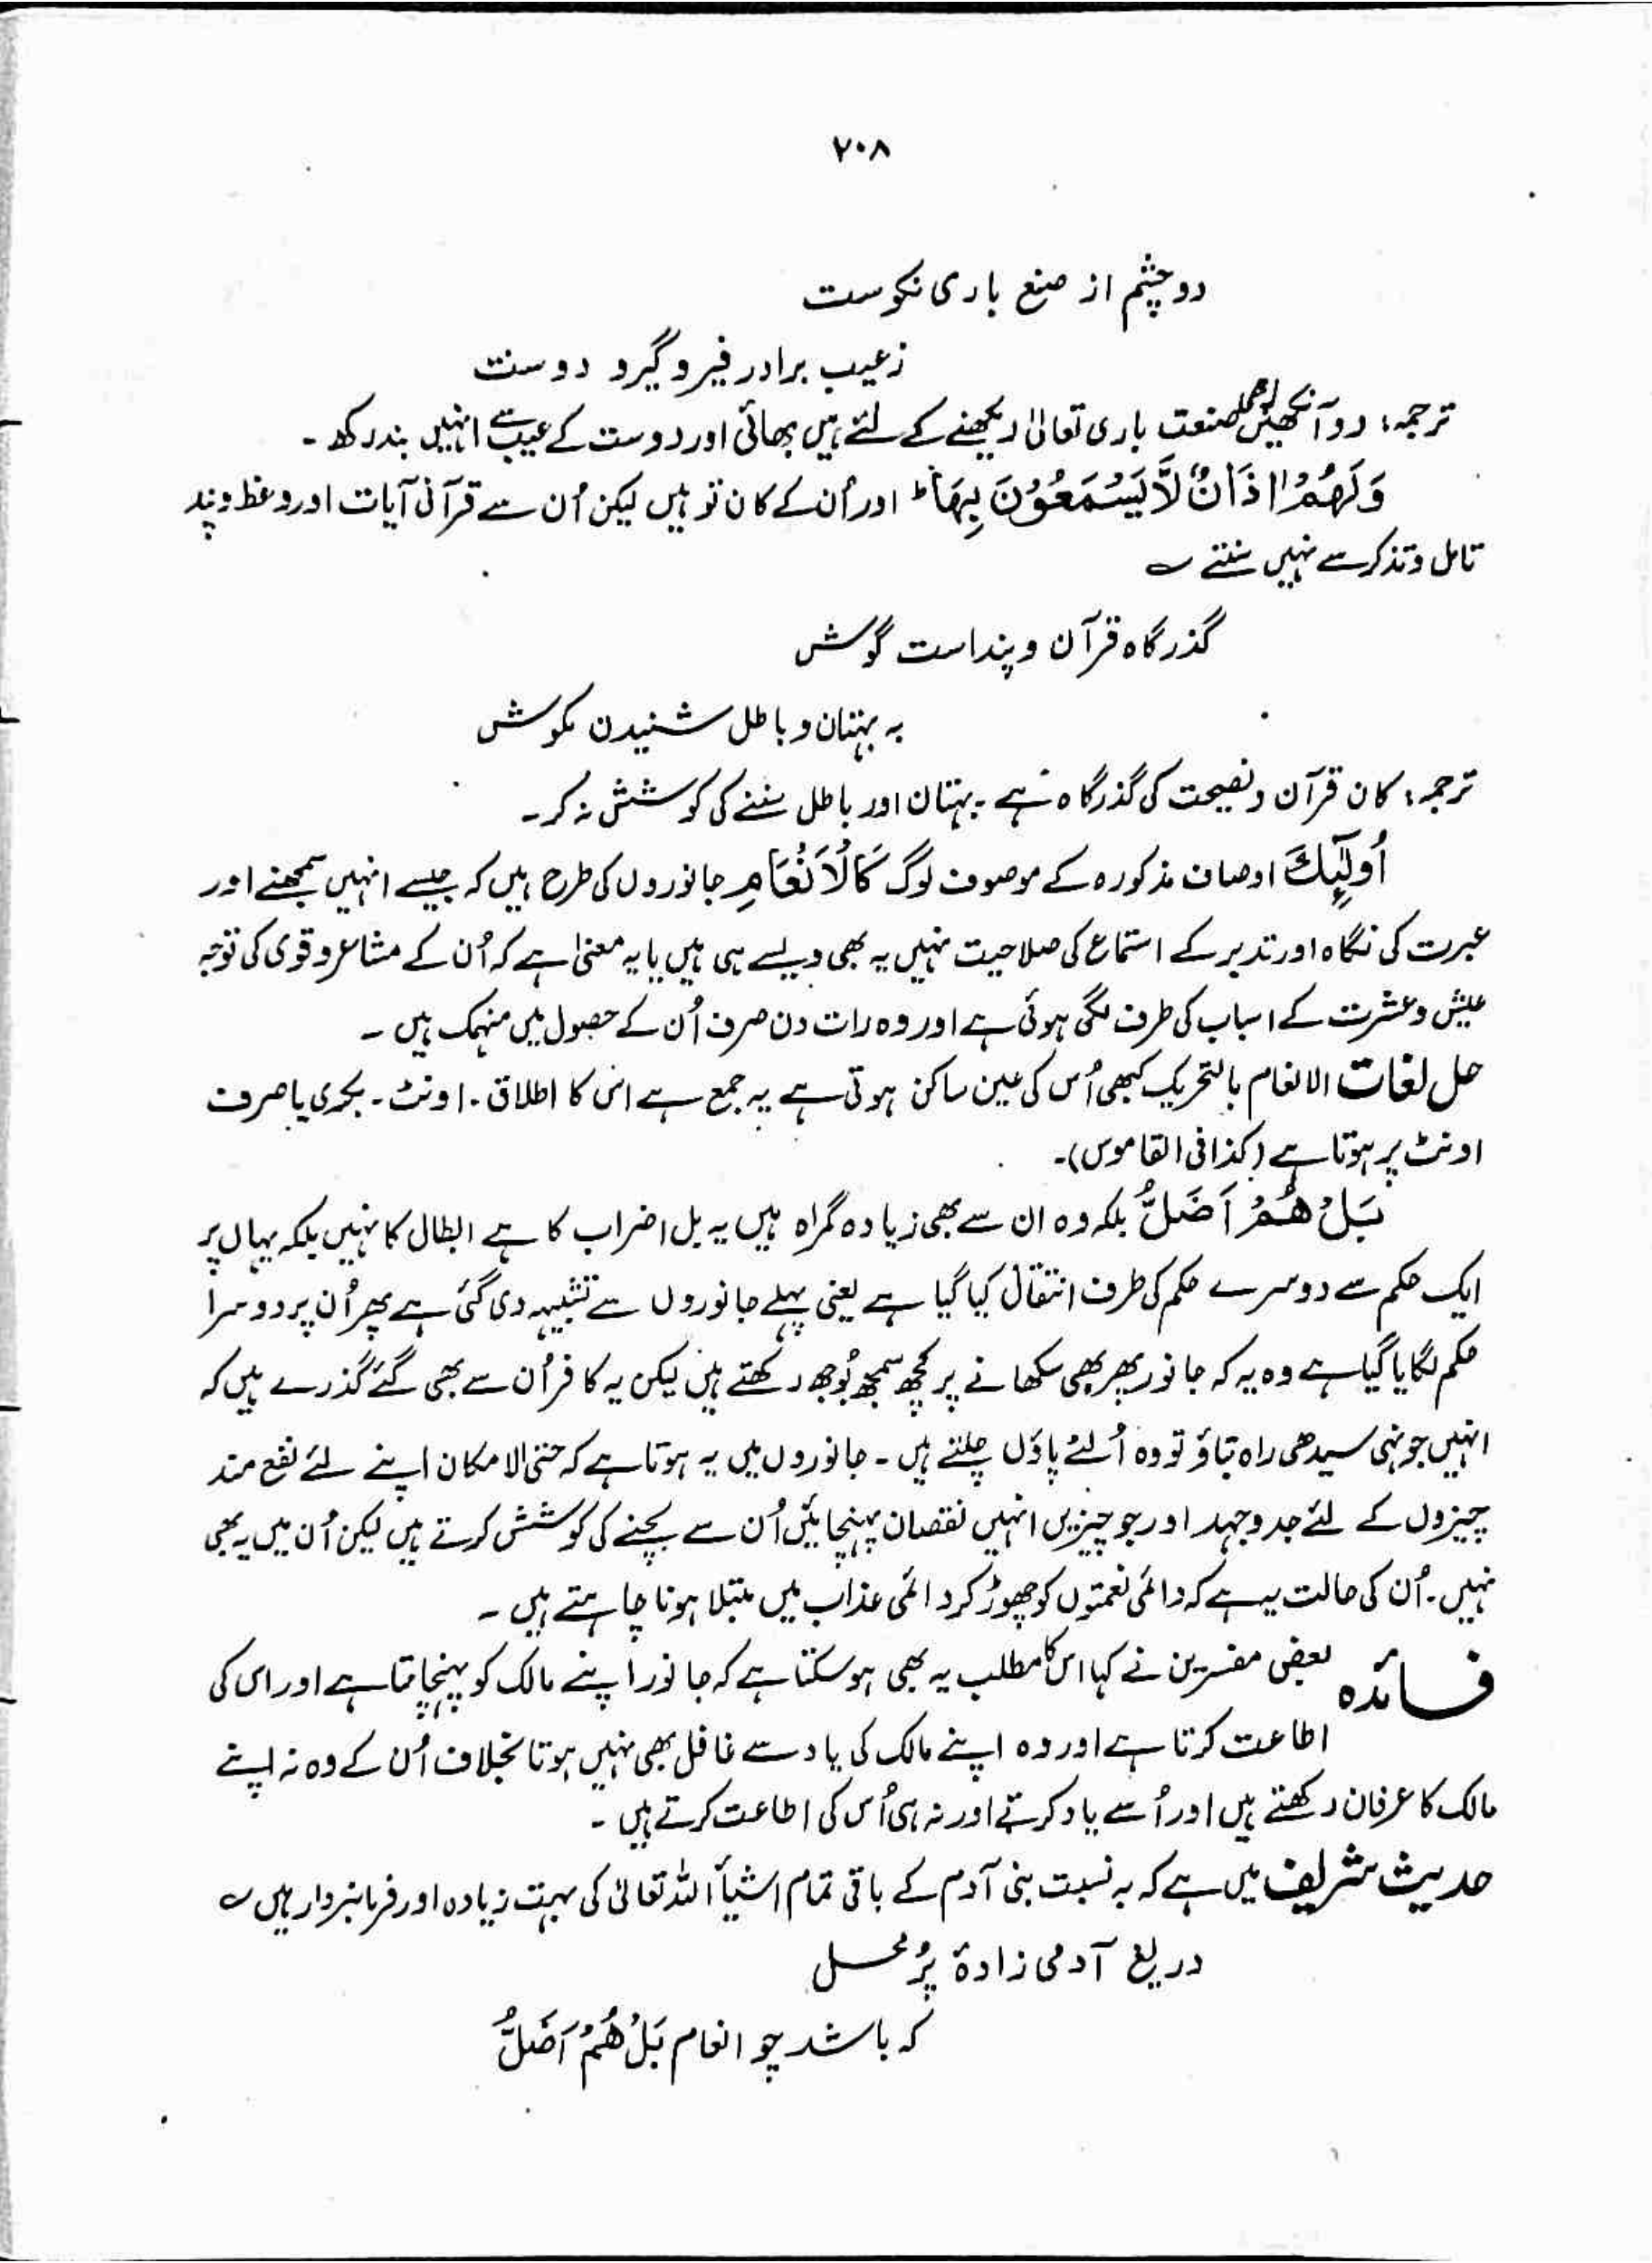 ۲۰۸
دو چشم از صنع باری نکوست
زعیب برادر فیرو گیرو دوست
ترجمہ: دو آنکھیں صنعت باری تعالیٰ دیکھنے کے لئے ہیں بھائی اور دوست کے عیب سے انہیں بند رکھ ۔
وَلَهُمْ اٰذَانٌ لَّا يَسْمَعُوْنَ بِهَا ط اور اُن کے کان تو ہیں لیکن اُن سے قرآنی آیات اور وعظ و پند
تامل و تذکر سے نہیں سنتے ؎
گذرگاہ قرآن و پند است گوش
بہ بہتان و باطل شنیدن مکوش
ترجمہ: کان قرآن و نصیحت کی گذرگاہ ہے ۔ بہتان اور باطل سننے کی کوشش نہ کر ۔
اُولٰٓئِكَ اوصاف مذکورہ کے موصوف لوگ كَالْاَنْعَامِ جانوروں کی طرح ہیں کہ جیسے انہیں سمجھنے اور
عبرت کی نگاہ اور تدبر کے استماع کی صلاحیت نہیں یہ بھی ویسے ہی ہیں یا یہ معنیٰ ہے کہ اُن کے مشاعر و قویٰ کی توجہ
عیش و عشرت کے اسباب کی طرف لگی ہوئی ہے اور وہ رات دن صرف اُن کے حصول میں منہمک ہیں ۔
حل لغات الانعام بالتحریک کبھی اُس کی عین ساکن ہوتی ہے یہ جمع ہے اس کا اطلاق ۔ اونٹ ۔ بکری یا صرف
اونٹ پر ہوتا ہے (کذا فی القاموس) ۔
بَلْ هُمْ اَضَلُّ بلکہ وہ ان سے بھی زیادہ گمراہ ہیں یہ بل اضراب کا ہے ابطال کا نہیں بلکہ یہاں پر
ایک حکم سے دوسرے حکم کی طرف انتقال کیا گیا ہے یعنی پہلے جانوروں سے تشبیہہ دی گئی ہے پھر اُن پر دوسرا
حکم لگایا گیا ہے وہ یہ کہ جانور پھر بھی سکھانے پر کچھ سمجھ بُوجھ رکھتے ہیں لیکن یہ کافر اُن سے بھی گئے گذرے ہیں کہ
انہیں جونہی سیدھی راہ بتاؤ تو وہ اُلٹے پاؤں چلتے ہیں ۔ جانوروں میں یہ ہوتا ہے کہ حتی الامکان اپنے لئے نفع مند
چیزوں کے لئے جدوجہد اور جو چیزیں انہیں نقصان پہنچائیں اُن سے بچنے کی کوشش کرتے ہیں لیکن اُن میں یہ بھی
نہیں ۔ اُن کی حالت یہ ہے کہ دائمی نعمتوں کو چھوڑ کر دائمی عذاب میں مبتلا ہونا چاہتے ہیں ۔
فائدہ بعض مفسرین نے کہا اس کا مطلب یہ بھی ہوسکتا ہے کہ جانور اپنے مالک کو پہنچانتا ہے اور اس کی
اطاعت کرتا ہے اور وہ اپنے مالک کی یاد سے غافل بھی نہیں ہوتا بخلاف اُن کے وہ نہ اپنے
مالک کا عرفان رکھتے ہیں اور اُسے یاد کرتے اور نہ ہی اُس کی اطاعت کرتے ہیں ۔
حدیث شریف میں ہے کہ بہ نسبت بنی آدم کے باقی تمام اشیأ اللہ تعالیٰ کی بہت زیادہ اور فرمانبردار ہیں ؎
دریغ آدمی زادۂ پُر محل
کہ باشد چو انعام بَلْ هُمْ اَضَلُّ